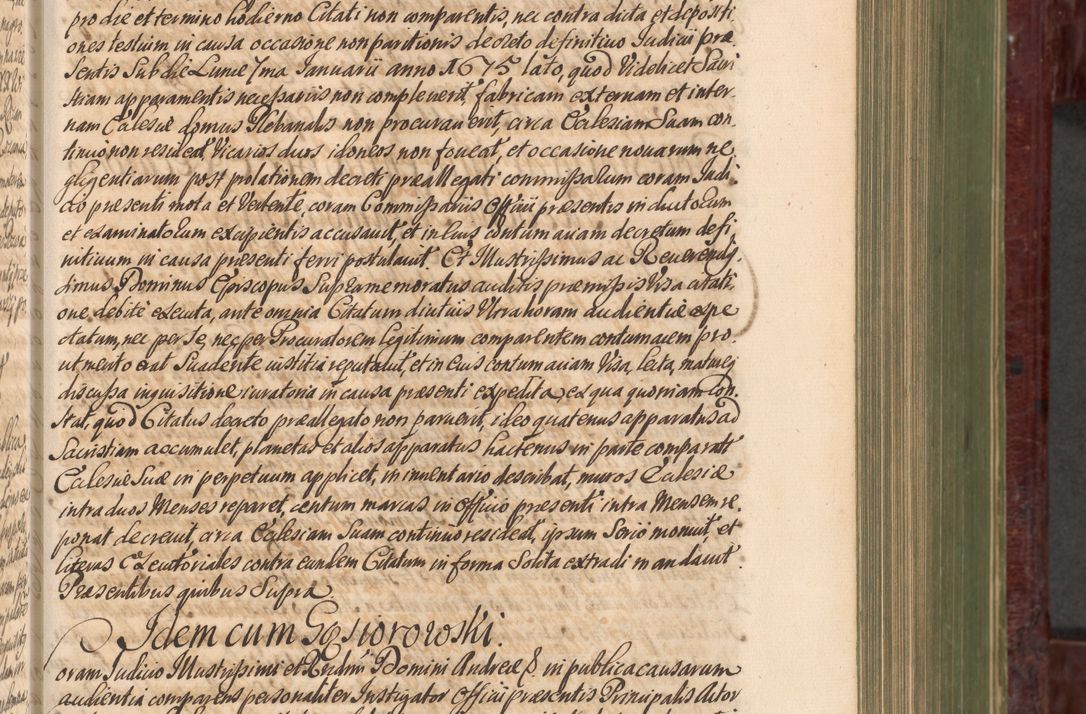 pro die et termino hodierno Citati non comparentis, nec contra dicta et depositi
ones testium in causa occasione non paritionis decreto definitivo Judicii præ
sentis sub die Lunæ 7ma Januarii anno 1675 lato, quod videlicet Sacri
stiam apparamentis necessariis non compleverit, fabricam externam et inter
nam Ecclesiæ domus Plebanalis non procuraverit, circa Ecclesiam suam con
tinuo non resideat, Vicarios duos idoneos non foveat, et occasione novarum ne
gligentiarum post prolationem decreti præallegati commissarum coram Judi
cio præsenti mota et vertente, coram Commissariis Officii præsentis inductorum
et examinatorum excipientis accusavit, et in eius contumaciam decretum defi
nitivum in causa præsenti ferri postulavit. Et Illustrissimus ac Reverendis
simus Dominus Episcopus Supramemoratus auditis præmissis visa citati
one debitè executa, ante omnia Citatum diutius Ultrahoram audientiæ expe
ctatum, nec per se, nec per Procuratorem legitimum comparentem contumacem pro
ut merito erat Suadente iustitia reputavit, et in eius contumaciam Visa, lecta, matureq
discussa inquisitione iuratoria in causa præsenti expedita, ex qua quoniam Con
stat, quod Citatus decreto præallegato non paruerit, ideo quatenus apparatus ad
Sacristiam accumulet, planetas et alios apparatus hactenus in parte comparatos
Ecclesiæ suæ in perpetuum applicet, in inventario describat, muros Ecclesiæ
intra duos Menses reparet, centum marcas in Officio præsenti intra Mensem re
ponat decrevit, circa Ecclesiam Suam continuo resideat, ipsum Serio monuit, et
literas Executoriales contra eundem Citatum in forma Solita extradi mandavit.
Præsentibus quibus Supra.
Idem cum Gąsiorowski.
oram Judicio Illustrissimi et Rndmi Domini Andreæ &c in publica causarum
audientia comparens personaliter Instigator Officii præsentis Principalis Actor